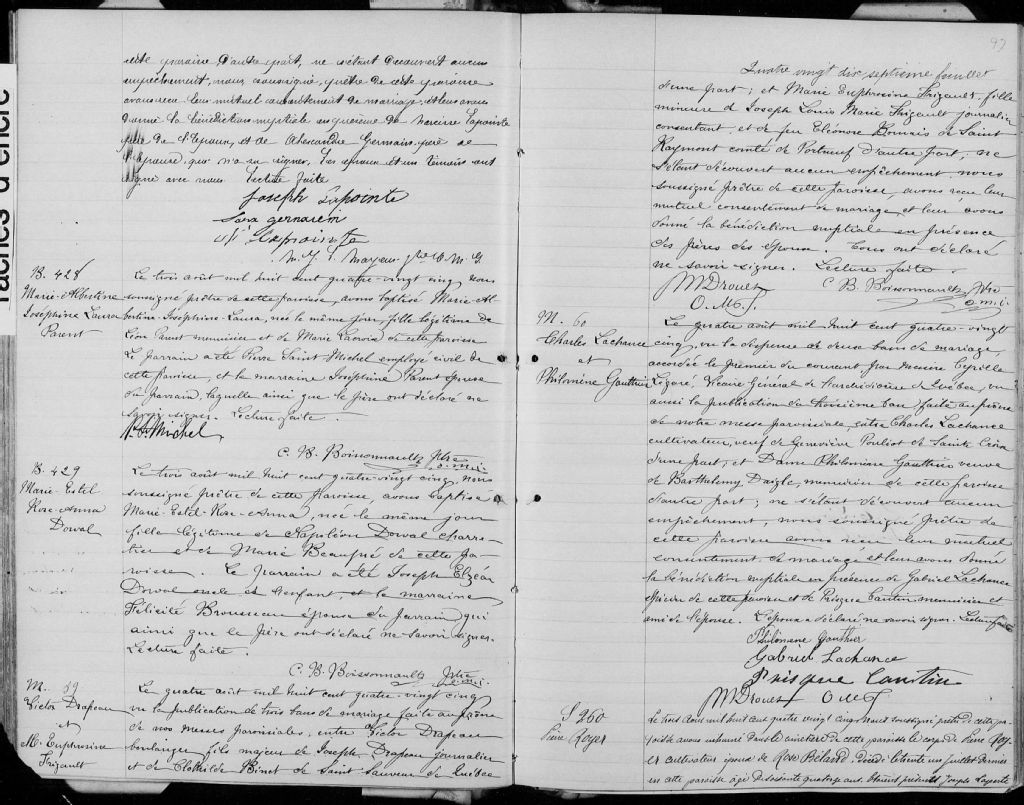 cette paroisse d'autre part, ne s'étant découvert aucun
empêchement, nous soussigné, prêtre de cette paroisse
avons reçu leur mutuel consentement de mariage, et leur avons
donné la bénédiction nuptiale en présence de Narcisse Lapointe
père de l'Epoux, et de Alexandre Germain père de
l'Epouse, qui n'a su signer. Les époux et un témoin ont
signé avec nous. Lecture faite
Joseph Lapointe
Sara germain
Lapointe
O. M. I.
B. 428
Marie-Albertine
Joséphine Laura
Parent
Le trois août mil huit cent quatre-vingt cinq, nous
soussigné prêtre de cette paroisse, avons baptisé Marie-Al-
bertine-Joséphine-Laura, née le même jour, fille légitime de
Léon Parent menuisier et de Marie de cette paroisse
Le parrain a été Pierre Saint Michel employé civil de
cette paroisse, et la marraine Joséphine Parent épouse
du parrain, laquelle ainsi que le père ont déclaré ne
savoir signer. Lecture faite.
P. St Michel
C. B. Boissonnault Ptre
o.m.i.
B. 429
Marie-Estel
Rose-Anna
Dorval
Le trois août mil huit cent quatre-vingt cinq, nous
soussigné prêtre de cette paroisse, avons baptisé
Marie-Estel-Rose-Anna, née le même jour
fille légitime de Napoléon Dorval charre-
tier et de Marie Beaupré de cette pa-
roisse. Le parrain a été Joseph Elzéar
Dorval oncle de l'enfant, et la marraine
Félicité Brousseau épouse du parrain, qui
ainsi que le père ont déclaré ne savoir signer.
Lecture faite.
C. B. Boissonnault Ptre
o.m.i.
M. 59
Victor Drapeau
et
M. Euphrosine
Frigault
Le quatre août mil huit cent quatre-vingt cinq
vu la publication de trois bans de mariage faite au prône
de nos messes paroissiales, entre Victor Drapeau
boulanger, fils majeur de Joseph Drapeau journalier
et de Clothilde Binet de Saint Sauveur de Québec
97
Quatre vingt dix septième feuillet
d'une part; et Marie Euphrosine Frigault, fille
mineure d Joseph Louis Marie Frigault journalier
consentant, et de feu Eléonore de Saint
Raymont comté de Portneuf d'autre part, ne
s'étant découvert aucun empêchement, nous
soussigné prêtre de cette paroisse, avons reçu leur
mutuel consentement de mariage, et leur avons
donné la bénédiction nuptiale en présence
des pères des époux. Tous ont déclaré
ne savoir signer. Lecture faite.
JM Drouet C. B. Boissonnault Ptre
O. M. J. o.m.i.
M. 60
Charles Lachance
et
Philomène Gauthier
Le quatre août mil huit cent quatre-vingt
cinq, vu la dispense de deux bans de mariage,
accordée le premier du courant par Messire Cyrille
Légaré, Vicaire Général de l'archidiocèse de Québec, vu
aussi la publication du troisième ban faite au prône
de notre messe paroissiale, entre Charles Lachance
cultivateur, veuf de Geneviève Pouliot de Sainte
d'une part; et Dame Philomène Gauthier veuve
de Barthelemy Daigle, menuisier de cette paroisse
d'autre part; ne s'étant découvert aucun
empêchement, nous soussigné prêtre de
cette paroisse avons reçu leur mutuel
consentement de mariage et leur avons donné
la bénédiction nuptiale en présence de Gabriel Lachance
de cette paroisse et de Prisque Cantin menuisier et
ami de l'épouse. L'époux a déclaré ne savoir signer. Lecture faite
Philomène Gauthier
Gabriel Lachance
Prisque Cantin
JM Drouet O M J
S 260
Pierre Royer
Le trois août mil huit cent quatre vingt cinq nous soussigné prêtre de cette pa-
roisse avons inhumé dans le cimetière de cette paroisse le corps de Pierre Roy-
er cultivateur époux de Rose Béland. Décédé le trente un juillet dernier
en cette paroisse âgé de soixante quatorze ans. Etaient présents Joseph Laporte
taches d'encre